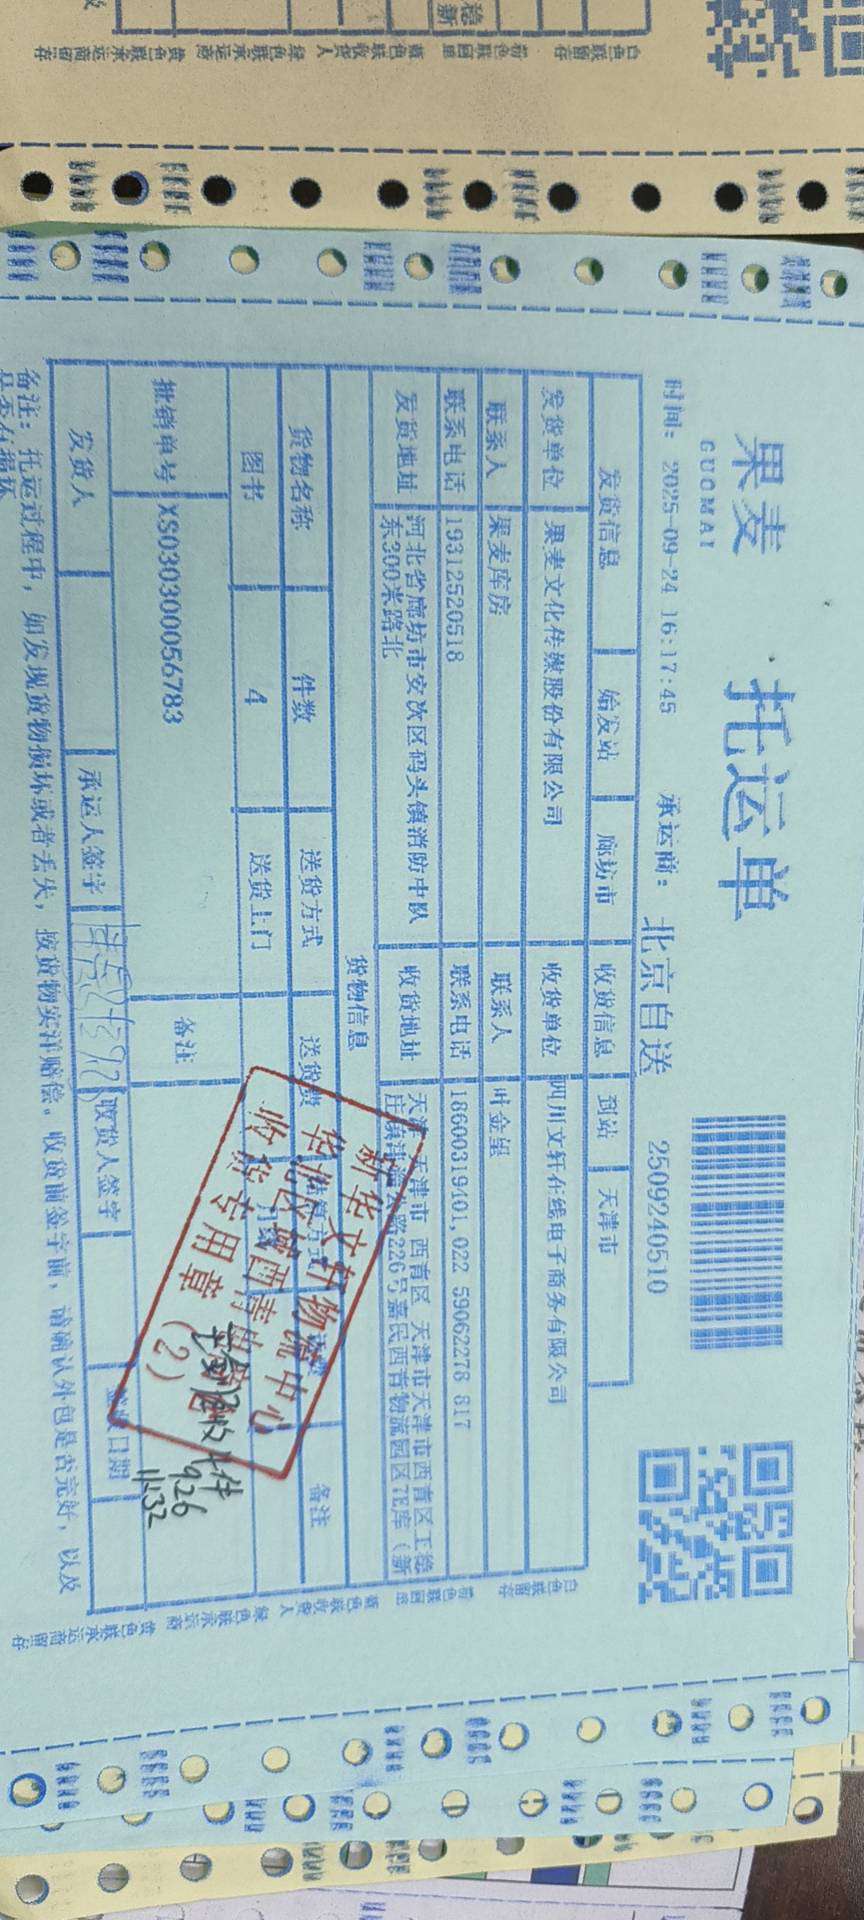 果麦
GUOMAI
托运单
时间: 2025-09-24 16:17:45 承运商: 北京自送 2509240510
发货信息 始发站 廊坊市 收货信息 到站 天津市
发货单位 果麦文化传媒股份有限公司 收货单位 四川文轩在线电子商务有限公司
联系人 果麦库房 联系人 叶金星
联系电话 19312520518 联系电话 18600319401,022 59062278 817
发货地址 河北省廊坊市安次区码头镇消防中队
东300米路北
收货地址 天津 天津市 西青区 天津市天津市西青区王稳
庄镇 226号嘉民西青物流园区7E库(新
货物信息
货物名称 件数 送货方式 送货费 备注
图书 4 送货上门
批销单号 XS030300056783 备注
发货人 承运人签字 收货人签字 签收日期
备注: 托运过程中, 如发现货物损坏或者丢失, 按货物实洋赔偿。收货前签字前, 请确认外包是否完好, 以及
是否有损坏
新华文轩物流中心
华北区域西青
收货专用章
(2)
926
11:32
白色联留存 粉色联回单 蓝色联收货人 绿色联承运商 黄色联承运商留存
白色联留存 粉色联回单 蓝色联收货人 绿色联承运商 黄色联承运商留存
稳
新